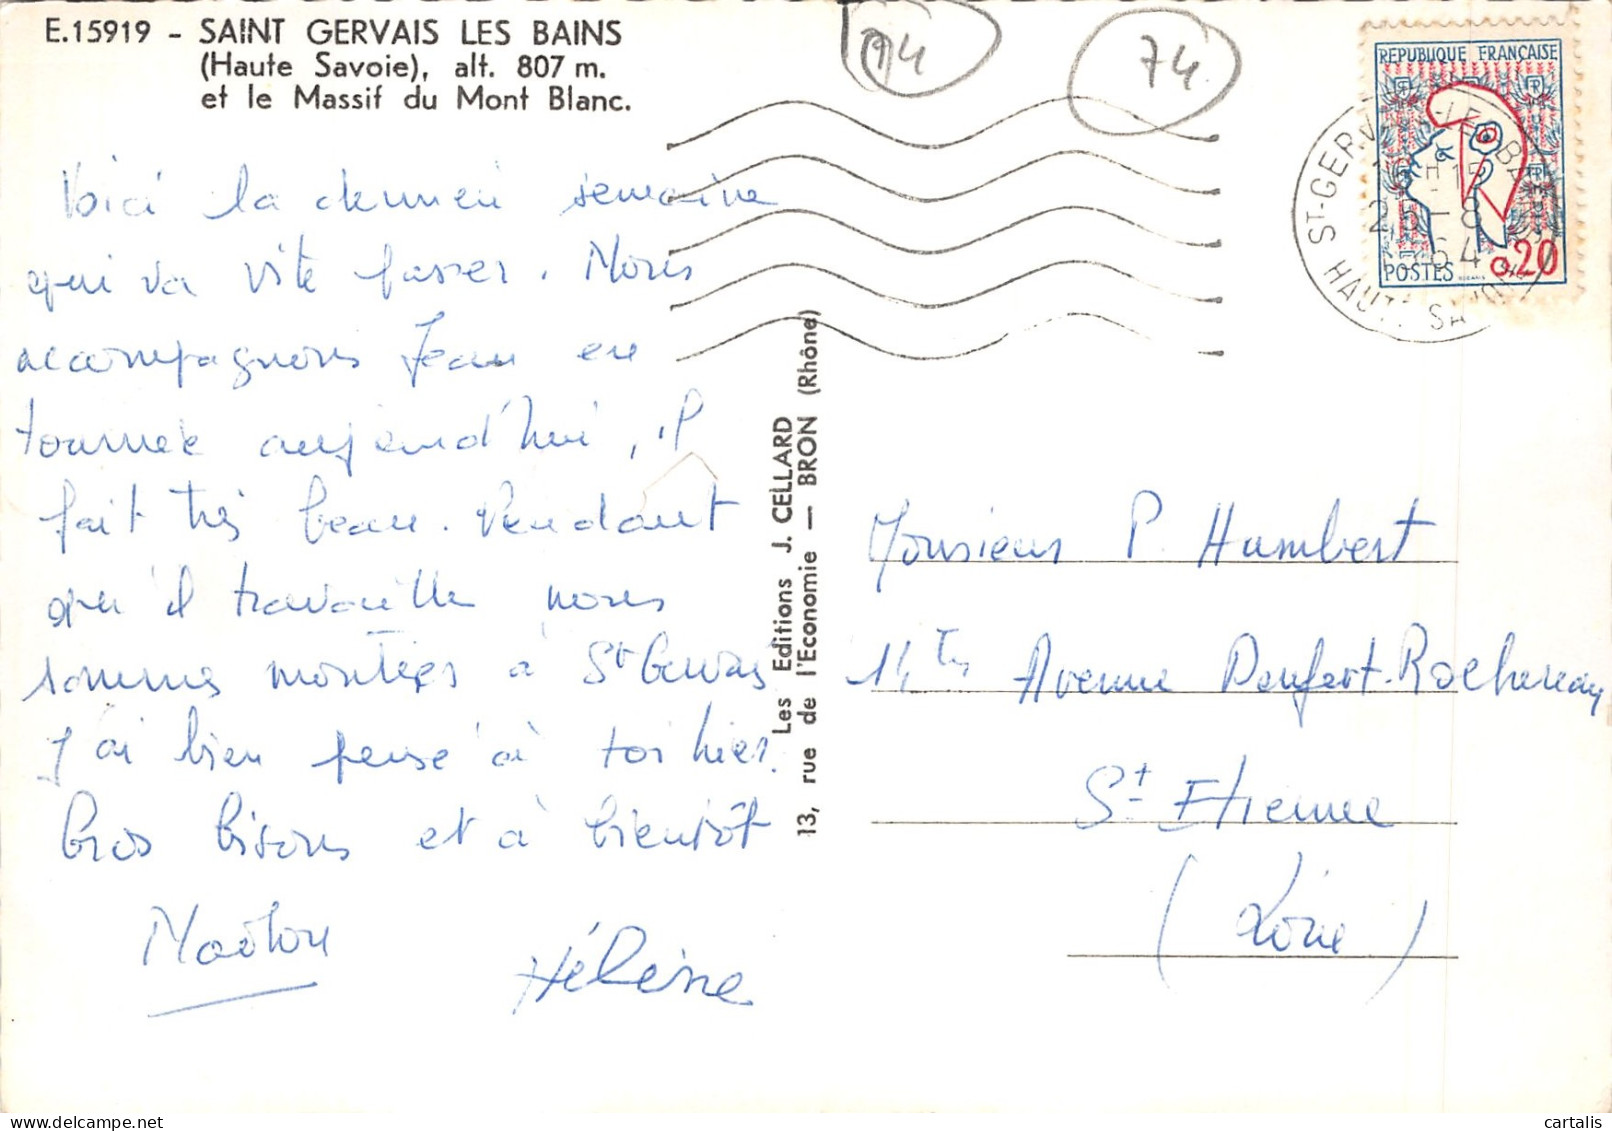 E.15919 - SAINT GERVAIS LES BAINS
(Haute Savoie), alt. 807 m.
et le Massif du Mont Blanc.
74
74
REPUBLIQUE FRANÇAISE
POSTES 0,20
ST-GERVAIS-LES-BAINS
16H15
25-8
64
HAUTE SAVOIE
Voici la dernièr semaine
qui va vite passer. Nous
accompagnons Jean en
tournée aujourd'hui, il
fait très beau. Pendant
qu'il travaille nous
sommes montées à St Gervais
J'ai bien pensé à toi hier.
Gros bisous et à bientôt
Hélène
Les Editions J. CELLARD
13, rue de l'Economie — BRON (Rhône)
Monsieur P. Humbert
14 Avenue Denfert-Rochereau
St Etienne
(Loire)
cartalis
www.delcampe.net